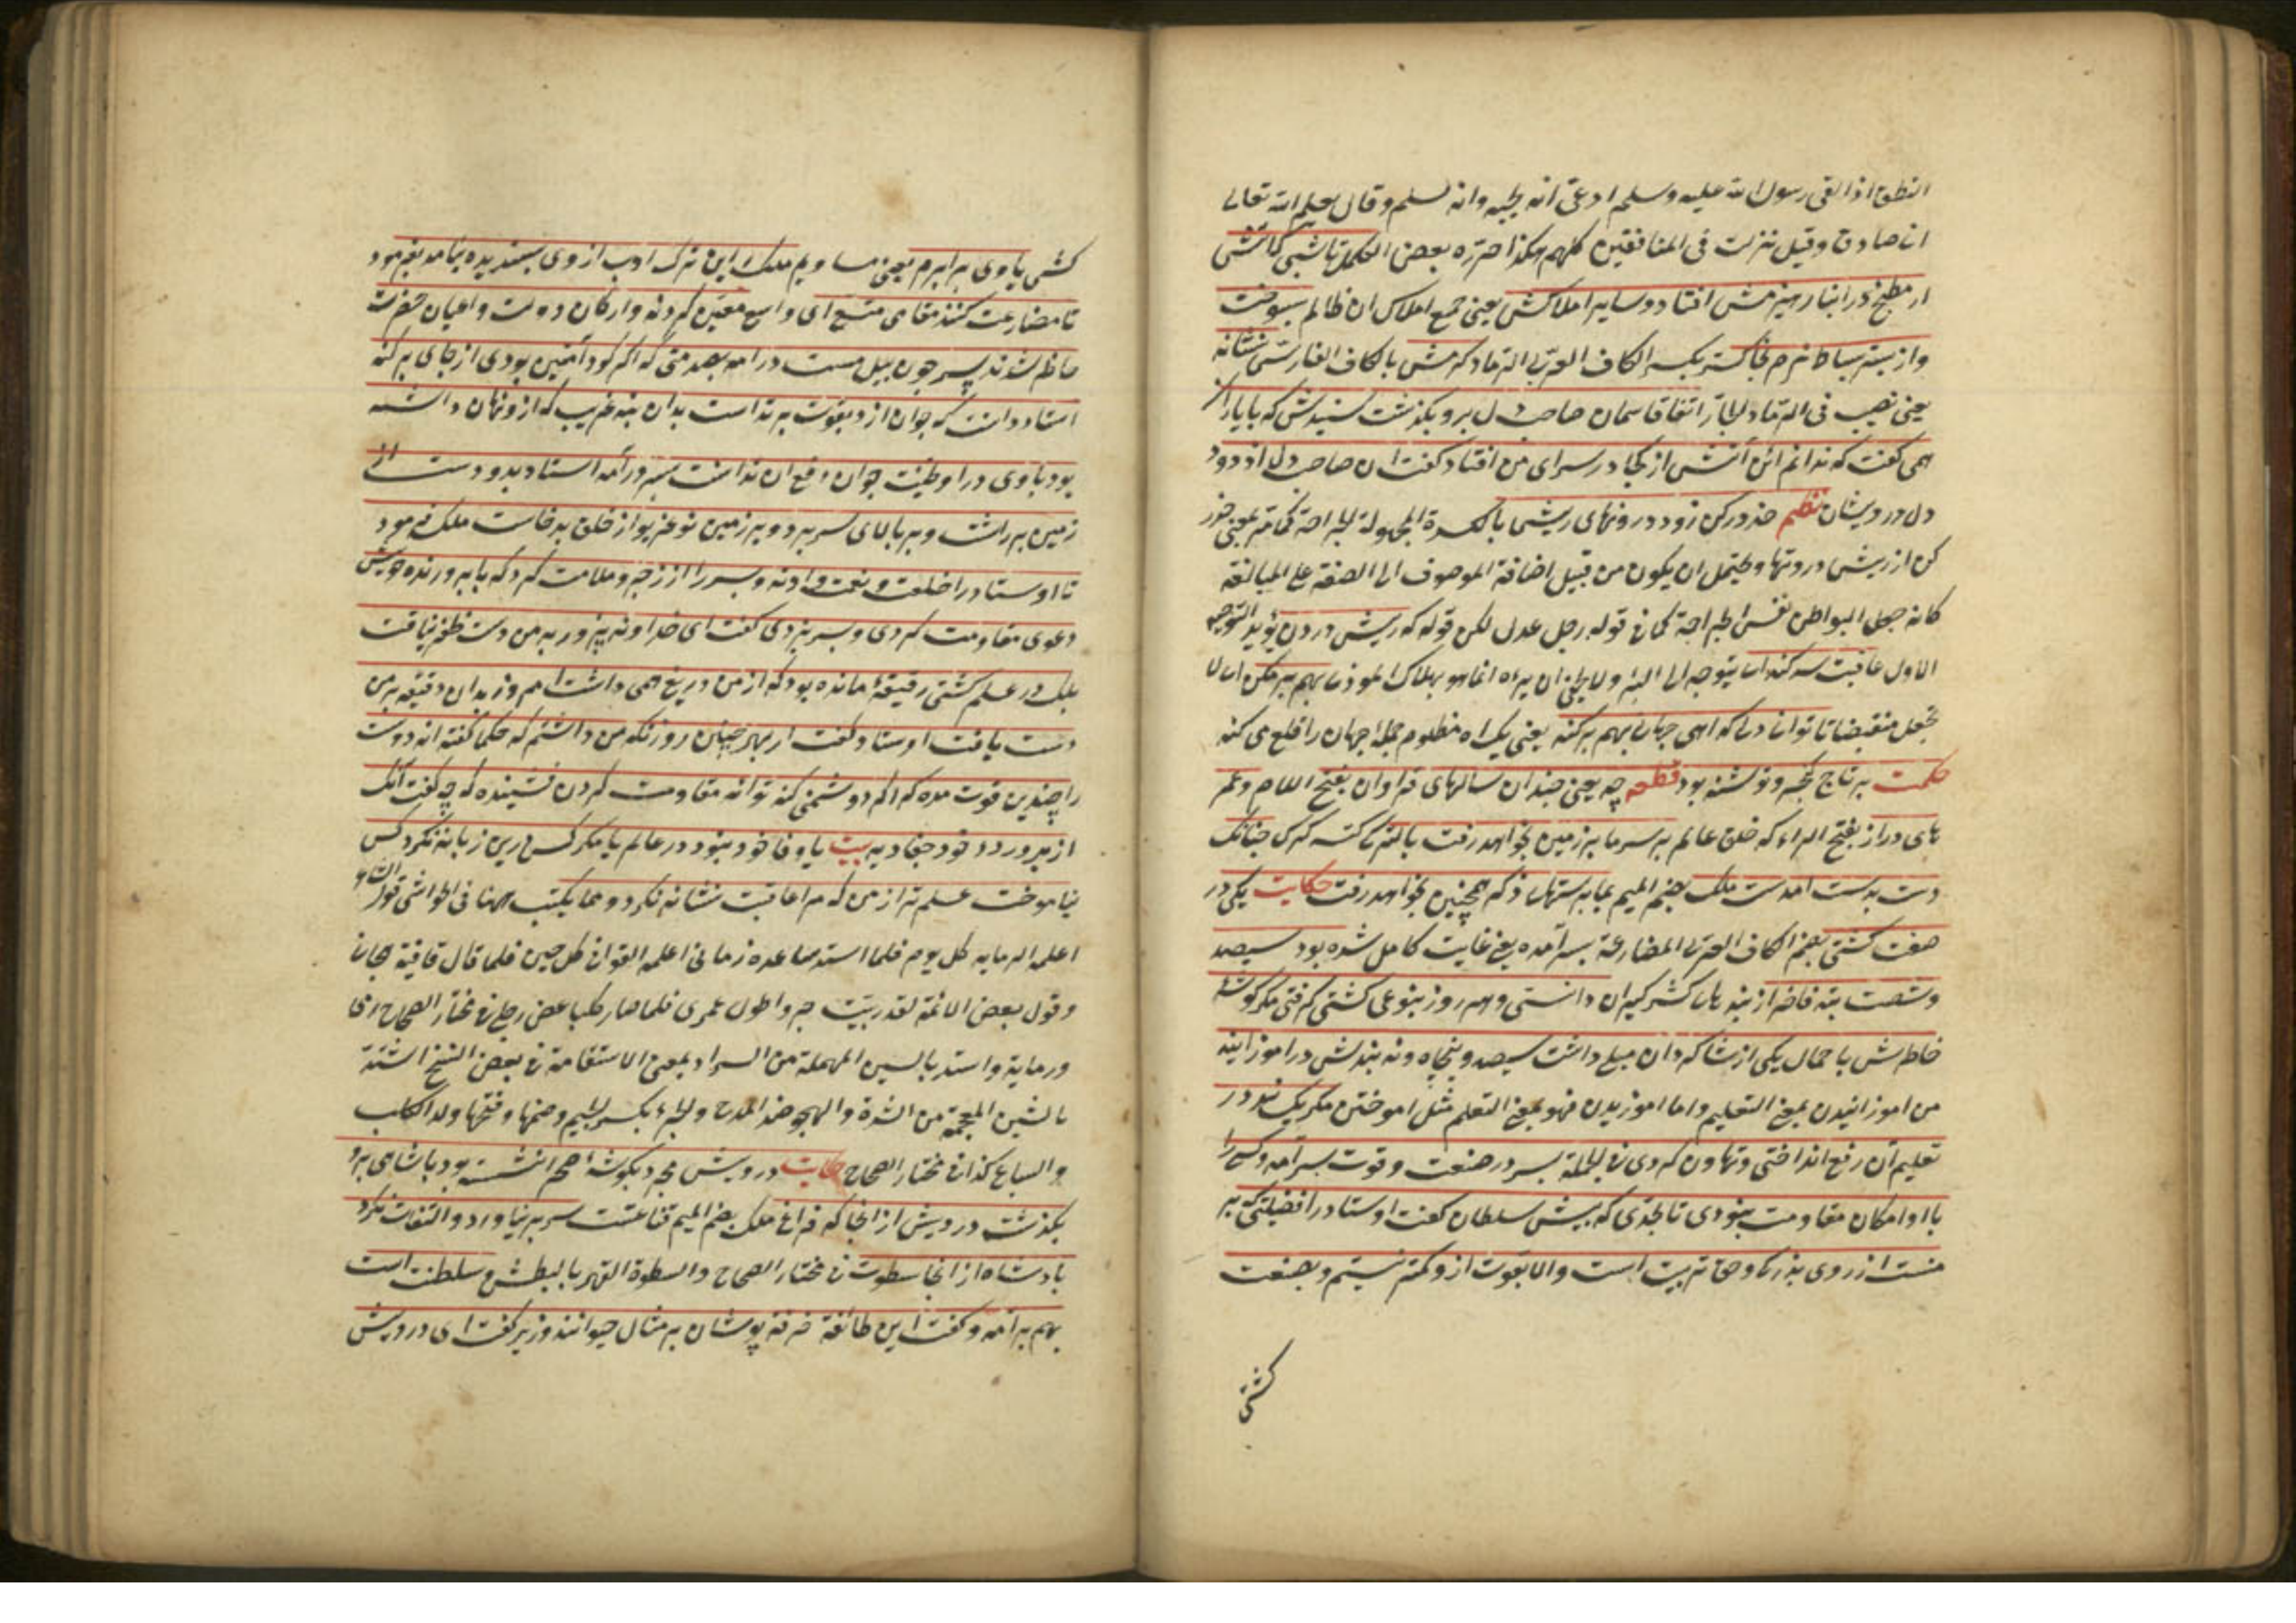 النطق اذا لقى رسول الله عليه وسلم ادعى انه يحبه وانه مسلم وقال يعلم الله تعالى
انى صادق وقيل نزلت فى المنافقين كلهم هكذا حرره بعض الكمل تا شبى كه آتش
از مطبخ در انبار هيزمش افتاد وسائر املاكش يعنى جميع املاك ان ظالم بسوخت
واز بستر نرم بخاكستر بكسر الكاف العربى الرماد كرمش بالكاف الفارسى نشانه
يعنى نصب فى الرماد اتفاقا همان صاحب دل برو بگذشت شنيدش كه با ياران
همى گفت كه ندانم اين آتش از كجا در سراى من افتاد گفت ان صاحب دل از دود
دل درويشان نظم حذر كن ز دود درونهاى ريش بالكسرة المجهولة الجراحة كما مر يعنى حذر
كن از ريش درونها ويحتمل ان يكون من قبيل اضافة الموصوف الى الصفة على المبالغة
كانه جعل البواطن نفس الجراحة كما فى قوله رجل عدل لكن قوله كه ريش درون يؤيد التوجيه
الاول عاقبت سر كند اى يتوجه الى بهم بر مكن اى لا
تجعل منقبضا تا توانى دلى كه اهى جهانى بهم بر كند يعنى يك اه مظلوم جمله جهان را قلع مى كند
حكمت بر تاج كيخسرو نوشته بود قطعه چه يعنى چندان سالهاى فراوان بفتح الفاء وعمر
هاى دراز بفتح الراء كه خلق عالم بر سر ما بر زمين بخواهد رفت چنانكه
دست بدست امدست ملك بضم الميم بما بدستهاى دگر همچنين بخواهد رفت حكايت يكى در
صنعت كشتى بضم الكاف العربى المصارعة بسر آمده يعنى غايت كامل شده بود سيصد
وشصت بند فاخر از بندهاى كشتى گيران دانستى وهر روز بنوعى كشتى گرفتى مگر گوشه
خاطرش با جمال يكى از شاگردان ميلى داشت سيصد وپنجاه ونه بندش در اموزانيد
من اموزانيدن بمعنى التعليم واما اموزيدن فهو بمعنى التعلم مثل اموختن مگر يك بند در
تعليم آن دفع انداختى وتهاون كردى فى الجملة پسر در صنعت وقوت بسر آمد وكس را
با او امكان مقاومت نبودى تا بحدى كه پيش سلطان گفت اوستاد را فضيلتى كه بر
منست از روى بزرگى وحق تربيت است والا بقوت از و كمتر نيستم وبصنعت
كشتى
كشتى با وى برابرم يعنى مساويم ملك را اين ترك ادب از وى پسنديده نيامد بفرمود
تا مصارعت كنند مقامى متسع اى واسع معين كردند واركان دولت واعيان حضرت
حاضر شدند پسر چون پيل مست درامد بصدمتى كه اگر كوه آهنين بودى از جاى بر كند
استاد دانست كه جوان از و بقوت برتر است بدان بند غريب كه از و نهان داشته
بود با وى در اويخت جوان دفع ان ندانست بسر درآمد استاد بدو دست از
زمين برداشت وبر بالاى سر برد وبر زمين زد غريو از خلق برخاست ملك فرمود
تا اوستاد را خلعت ونعمت دادند وپسر را از زجر وملامت كرد كه با پرورنده خويش
دعوى مقاومت كردى وبسر نبردى گفت اى خداوند بزور بر من دست ظفر نيافت
بلكه در علم كشتى دقيقه مانده بود كه از من دريغ همى داشت امروز بدان دقيقه بر من
دست يافت اوستاد گفت از بهر چنين روز نگه مى داشتم كه حكما گفته اند دوست
را چندين قوت مده كه اگر دشمنى كند تواند مقاومت كردن نشنيده كه چه گفت آنكه
از پرورده خود جفا ديد بيت يا وفا خود نبود در عالم يا مگر كس درين زمانه نكرد كس
نياموخت علم تير از من كه مرا عاقبت نشانه نكرد ومما يكتب ههنا فى الحواشى قول الشاعر
اعلمه الرماية كل يوم فلما استد ساعده رمانى اعلمه القوافى كل حين فلما قال قافية هجانى
وقول بعض الائمة لقد ربيت جروا طول عمرى فلما صار كلبا عض رجلى فى مختار الصحاح رمى
ورماية واستد بالسين المهملة من السداد بمعنى الاستقامة فى بعض النسخ اشتد
بالشين المعجمة من الشدة والهجو ضد المدح والجرو بكسر الجيم وضمها وفتحها ولد الكلب
والسباع كذا فى مختار الصحاح حكايت درويش مجرد بگوشه صحرا نشسته بود پادشاهى برو
بگذشت درويش از انجا كه فراغ ملك بضم الميم قناعتست سر بر نياورد والتفات نكرد
پادشاه از انجا سطوت فى مختار الصحاح والسطوة القهر بالبطش سلطنت است
بهم برآمد وگفت اين طائفه خرقه پوشان بر مثال حيوانند وزير گفت اى درويش